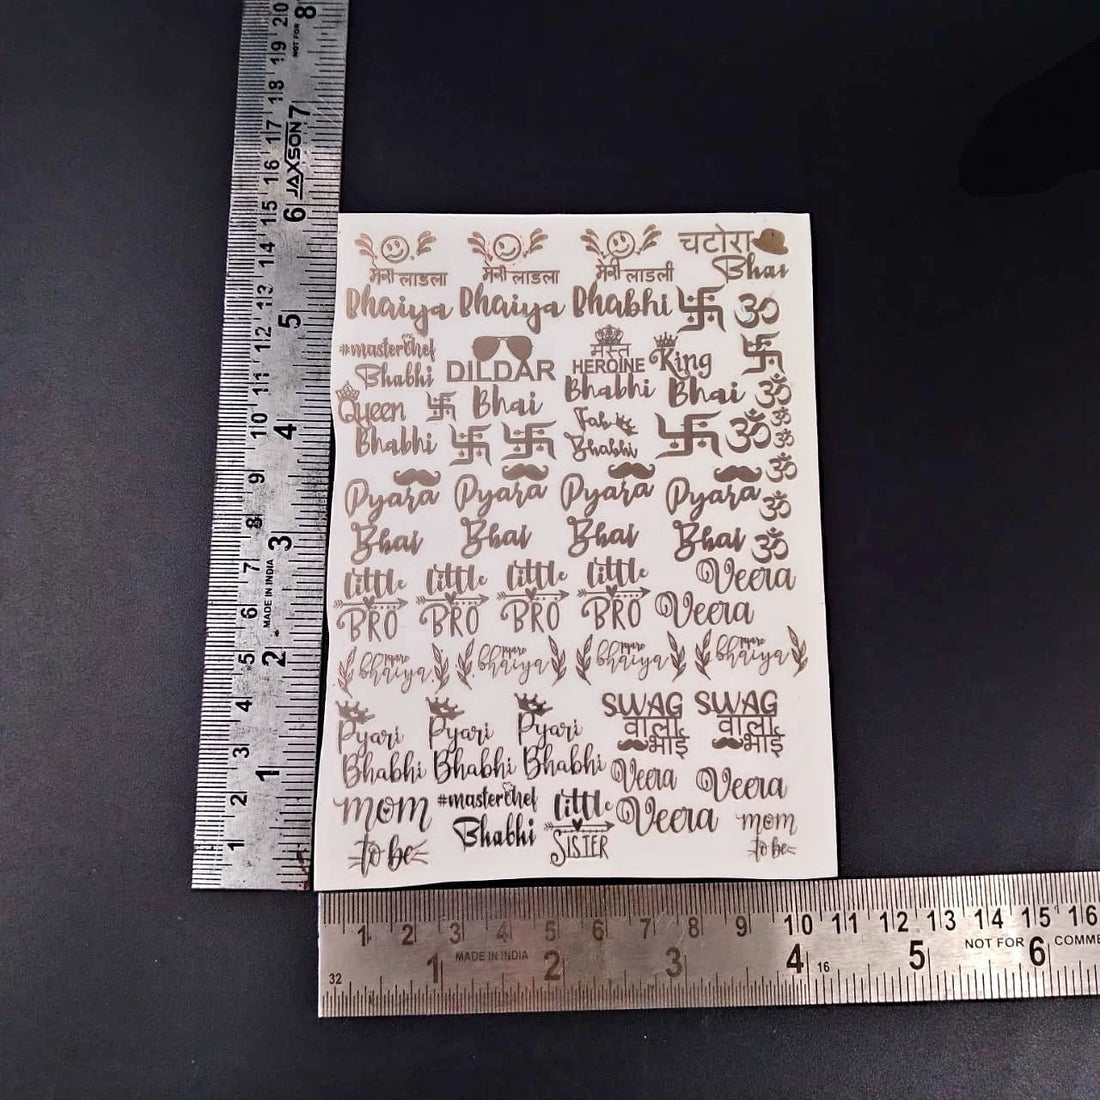 मेरी लाडला मेरी लाडला मेरी लाडली चटोरा
Bhai
Bhaiya Bhaiya Bhabhi ॐ
#masterchef DILDAR मस्त HEROINE King
Bhabhi Bhabhi Bhai ॐ
Queen Bhai Fab ॐ
Bhabhi Bhabhi ॐ ॐ
ॐ
Pyara Pyara Pyara Pyara ॐ
Bhai Bhai Bhai Bhai ॐ
little little little little Veera
BRO BRO BRO BRO Veera
pyare pyare pyare pyare
bhaiya bhaiya bhaiya bhaiya
SWAG SWAG
Pyari Pyari Pyari वाला वाला
भाई भाई
Bhabhi Bhabhi Bhabhi Veera Veera
mom #masterchef little Veera mom
to be Bhabhi SISTER to be
JAXSON
MADE IN INDIA
NOT FOR
1 2 3 4 5 6 7 8 9 10 11 12 13 14 15 16 17 18 19 20
1 2 3 4 5 6 7 8
1 2 3 4 5 6 7 8 9 10 11 12 13 14 15 16
MADE IN INDIA NOT FOR COMME
1 2 3 4 5 6
32 16